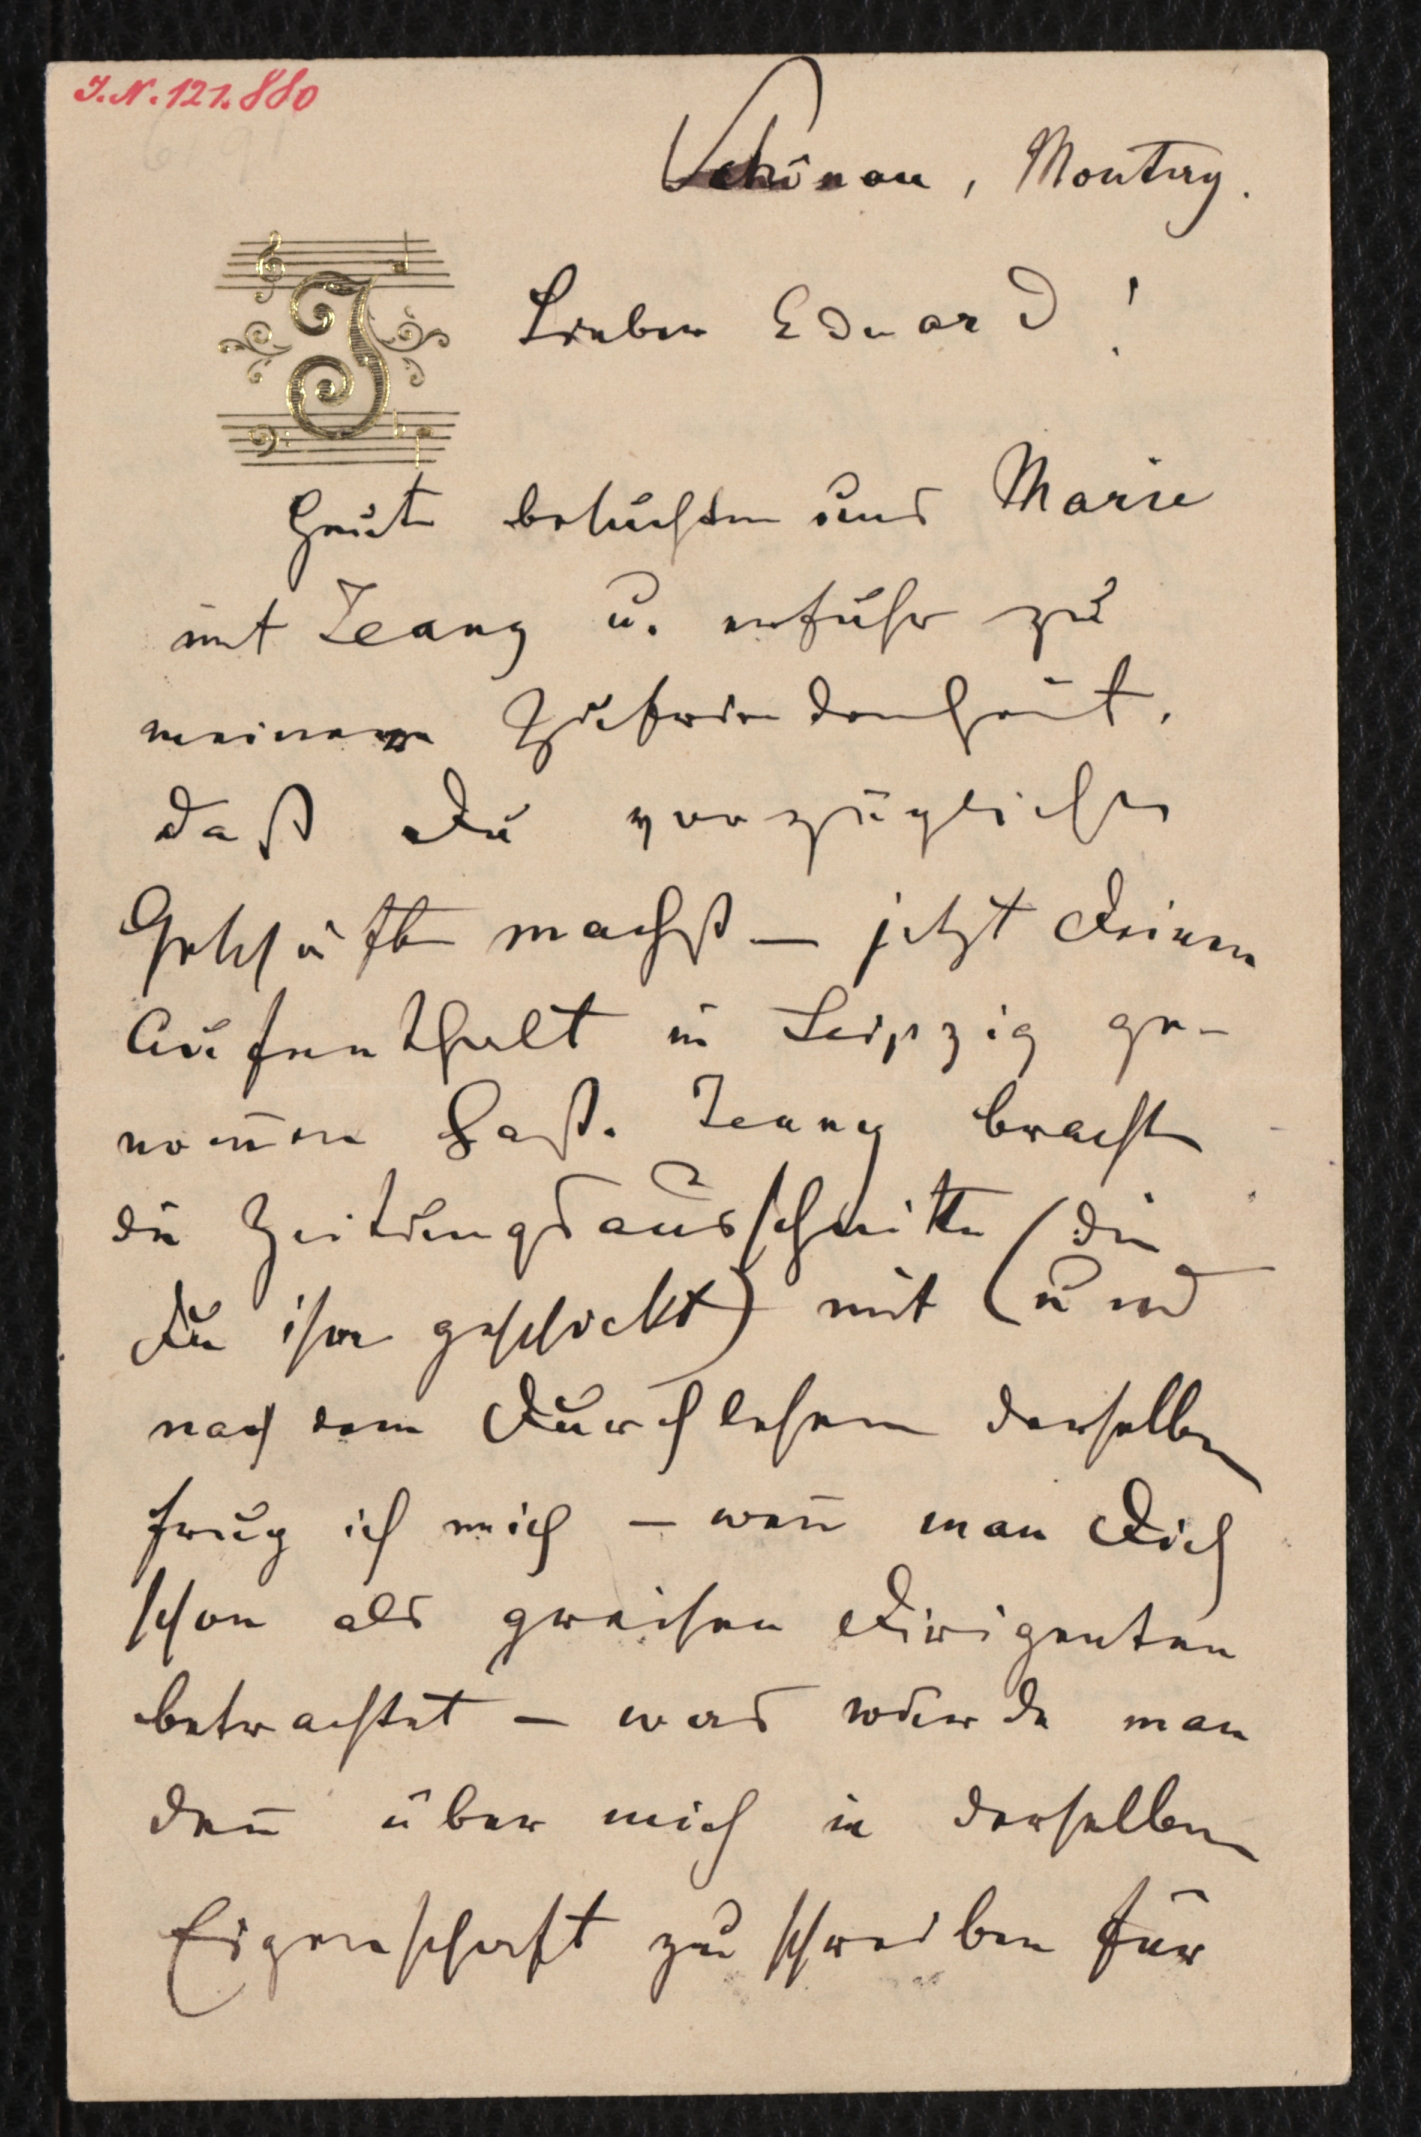 J.N. 121.880
Schönau, Montag.
Lieber Eduard!
Heute besuchten uns Marie
mit Jeany u. erfuhr zu
meiner Zufriedenheit,
daß Du vorzügliche
Geschäfte machst – jetzt Deinen
Aufenthalt in Leipzig ge-
nom̅en hast. Jeany brachte
die Zeitungsausschnitte (die
Du ihr geschickt) mit (und
nach dem Durchlesen derselben
frug ich mich – wen̅ man Dich
schon als greisen Dirigenten
betrachtet – was würde man
den̅ über mich in derselben
Eigenschaft zu schreiben für